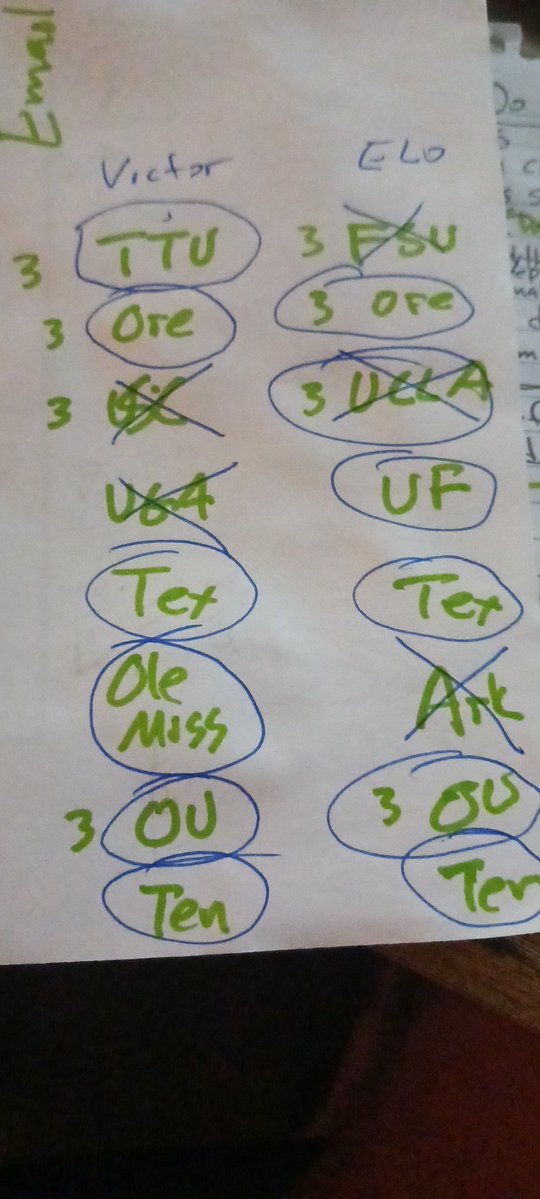 Email
Victor ELO
3 TTU 3 FSU
3 Ore 3 Ore
3 USC 3 UCLA
UGA UF
Tex Tex
Ole Ark
Miss
3 OU 3 OU
Ten Ten